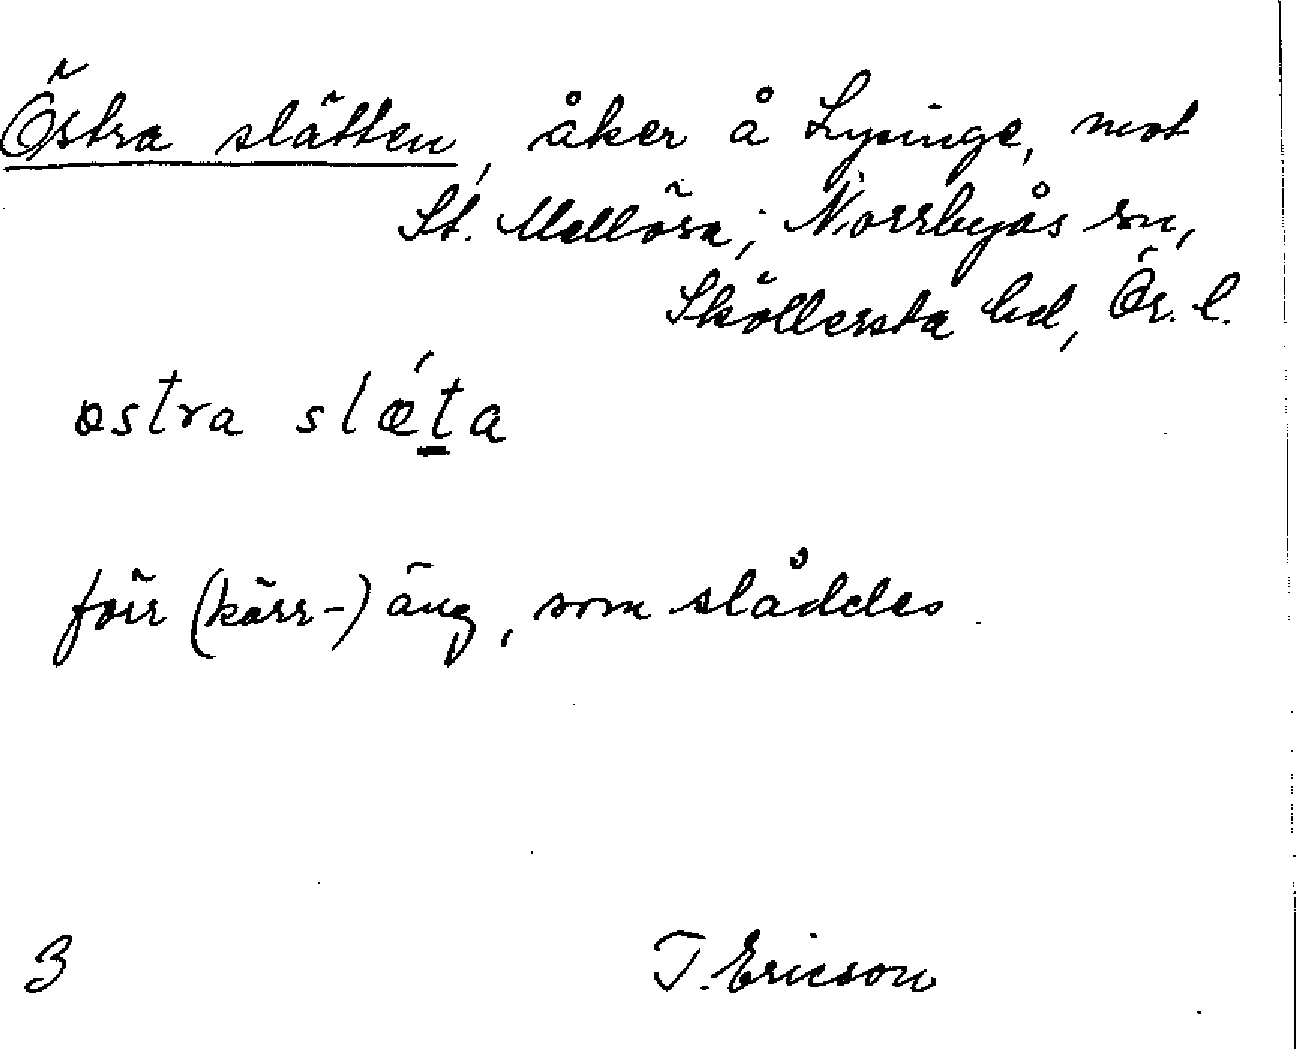 Östra slätten, åker å Lysinge, mot
St. Mellösa; Norrbyås sn,
Sköllersta hd, Ör. l.
østra slǽt̲a
förr (kärr-) äng, som slåddes
3 T. Ericson